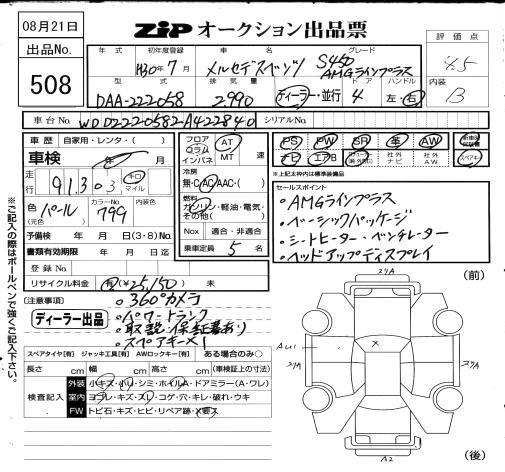 08月21日
ZIP オークション出品票
出品No.
508
評価点
4.5
内装
B
年式 初年度登録 車名 グレード
H30年7月 メルセデスベンツ S450 AMGラインプラス
型式 排気量 ドア ハンドル
DAA-222058 2990 ディーラー・並行 4 左・右
車台No. WDD2220582A422840 シリアルNo.
車歴 自家用・レンタ・( )
車検 年 月
走行 91,303 キロ マイル
色(元色) パール カラーNo. 799 内装色
予備検 年 月 日(3・8)No.
書類有効期限 年 月 日迄
登録No.
リサイクル料金 有(¥25,150) 未
フロア コラム インパネ AT MT 速
冷房 無・C・AC・AAC・( )
燃料 ガソリン・軽油・電気・その他( )
Nox 適合・非適合
乗車定員 5名
PS PW SR 革 AW
ナビ エアB 社外ナビ 社外AW スペアキー
※上記太枠内は標準装備品
セールスポイント
・AMGラインプラス
・ベーシックパッケージ
・シートヒーター・ベンチレーター
・ヘッドアップディスプレイ
(注意事項)
ディーラー出品
・360°カメラ
・パワートランク
・取説・保証書あり
・スペアキー×1
スペアタイヤ[有] ジャッキ工具[有] AWロックキー[有] ある場合のみ○
長さ cm 幅 cm 高さ cm (車検証上の寸法)
検査記入
外装 小キズ・小リ・シミ・ホイルA・ドアミラー(A・ワレ)
室内 ヨゴレ・キズ・スレ・コゲ・穴・キレ・破れ・ウキ
FW トビ石・キズ・ヒビ・リペア跡・X要ス
※ご記入の際はボールペンで強くご記入下さい。
(前)
AU1
X
A2
(後)